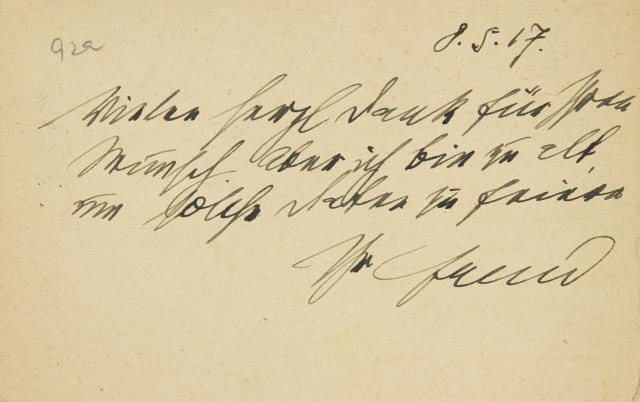 92a
8.5.17.
Vielen herzl Dank für Ihren
Wunsch, aber ich bin zu alt,
um solche Daten zu feiern
Ihr Freud